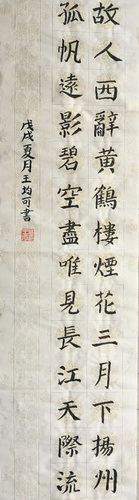 故人西辭黃鶴樓煙花三月下揚州
孤帆遠影碧空盡唯見長江天際流
戊戌夏月王均可書